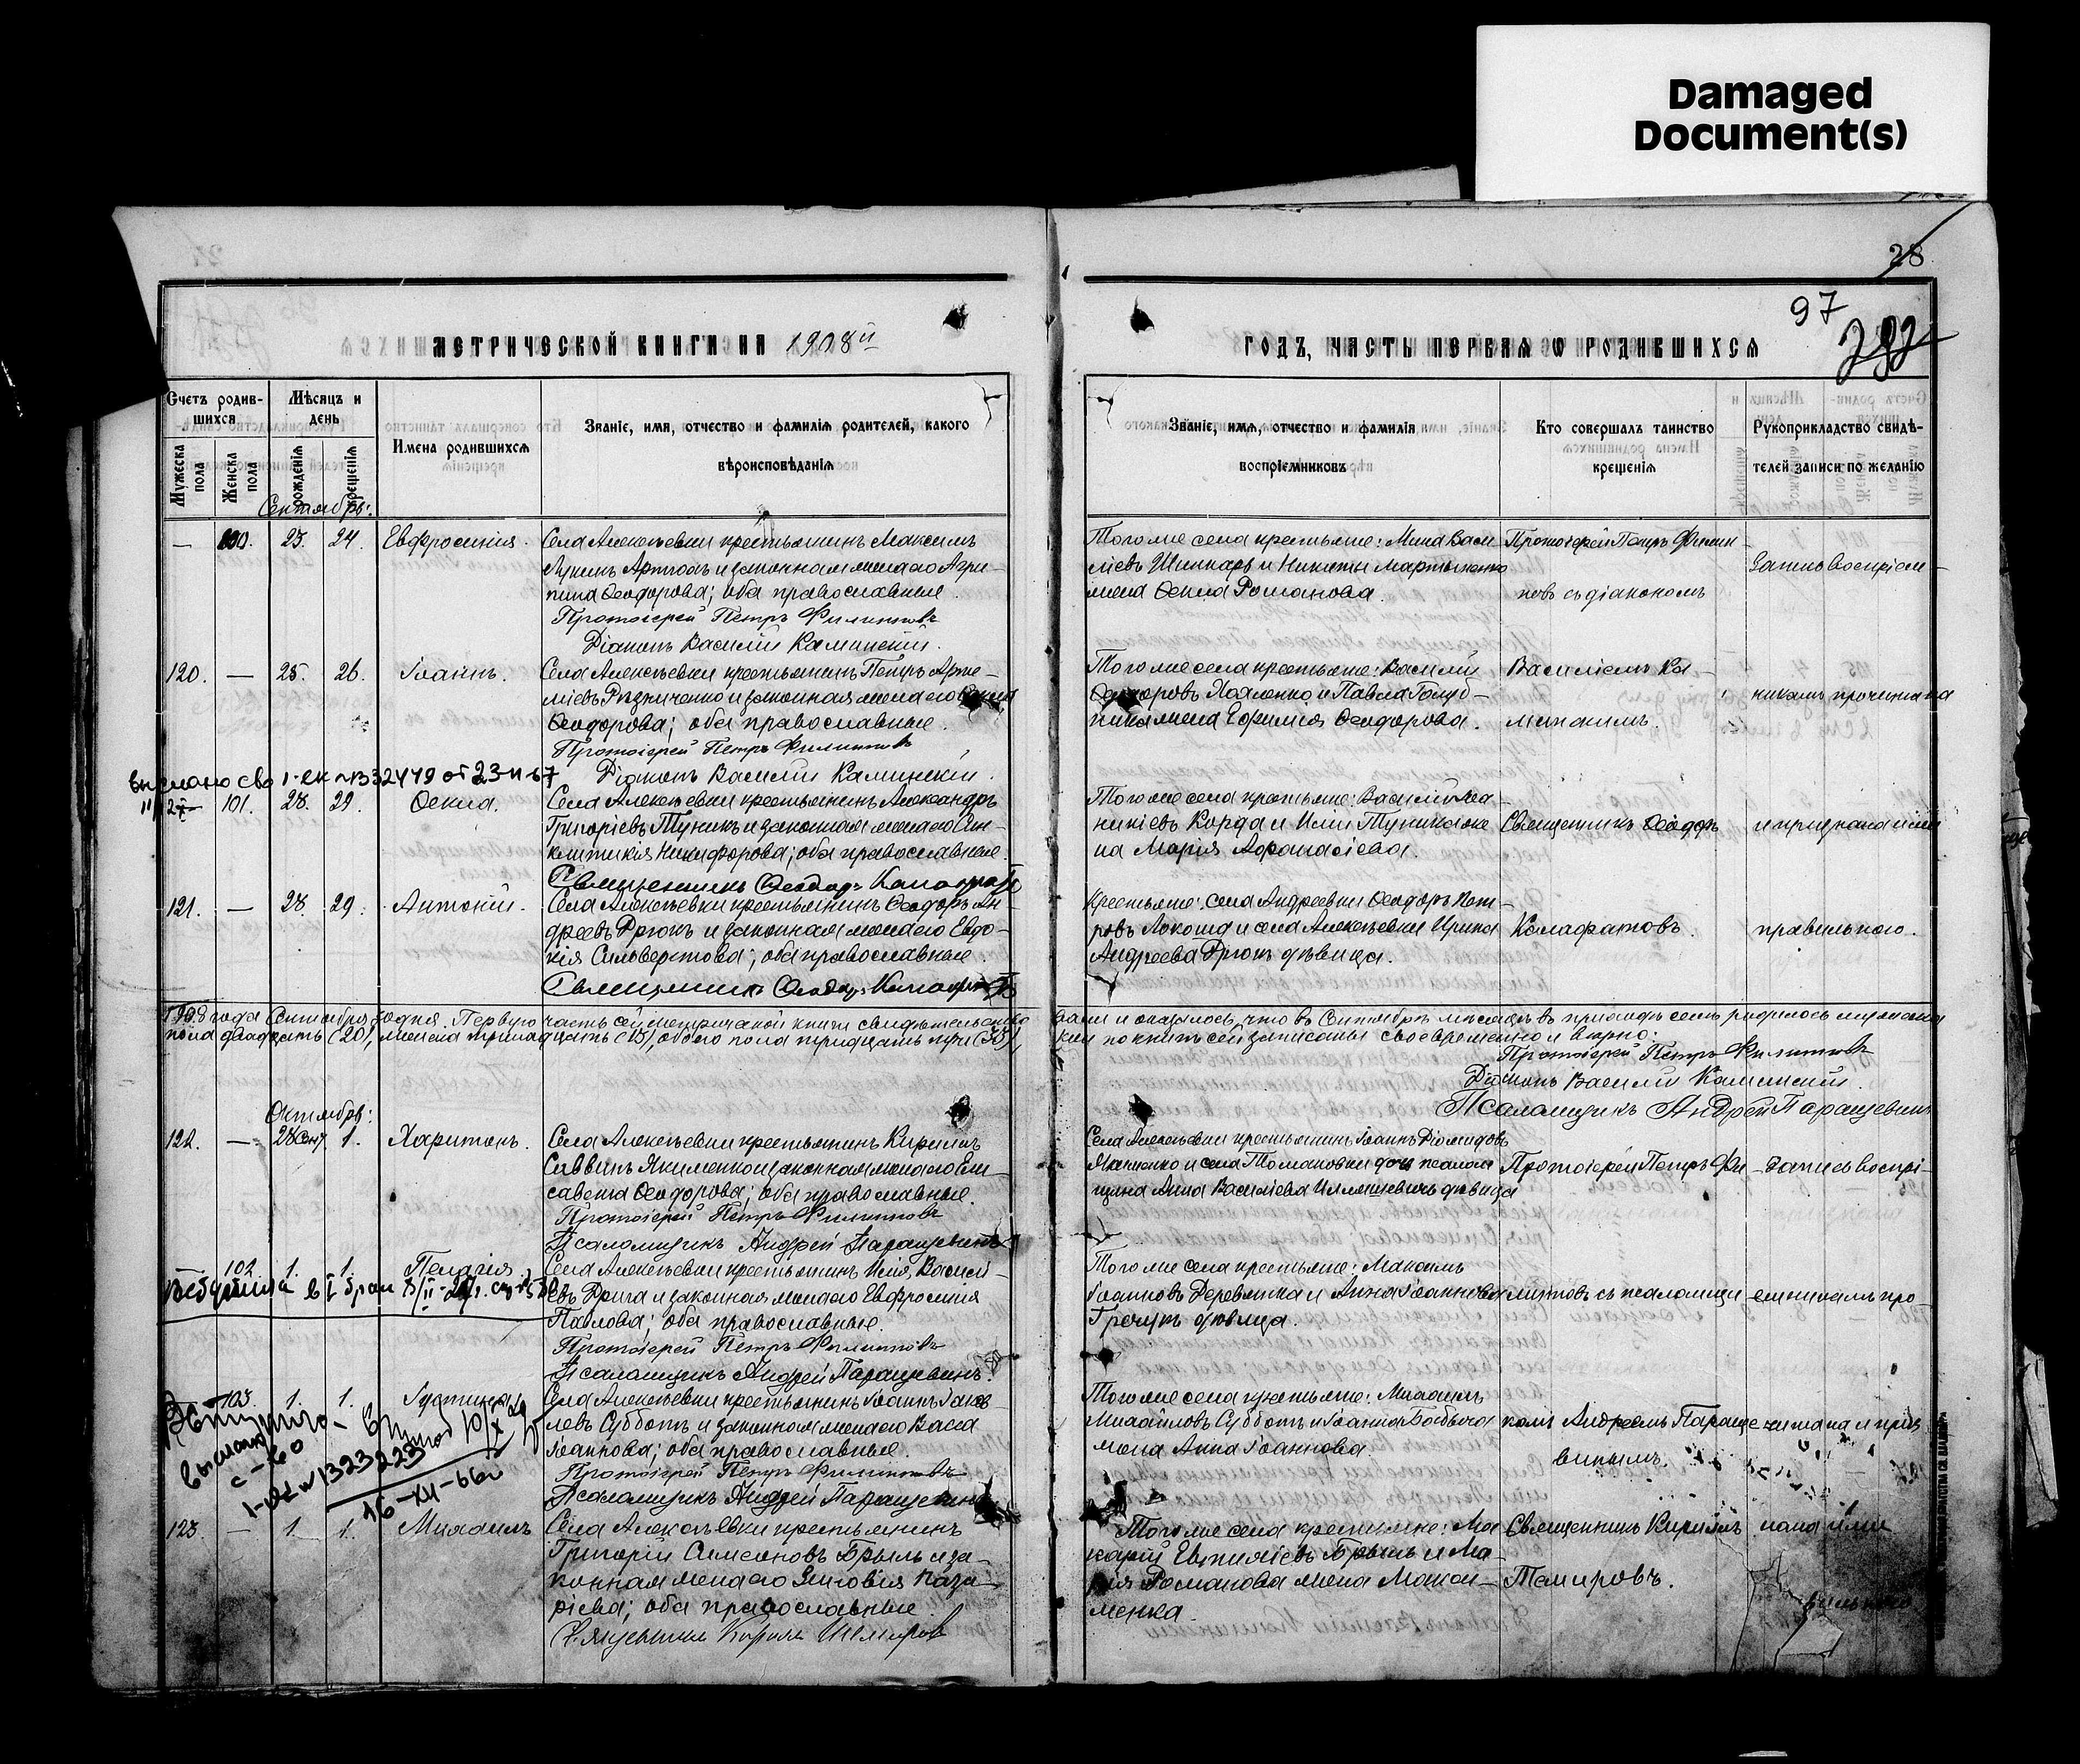 Damaged
Document(s)
28
97
МЕТРИЧЕСКОЙ КНИГИ НА 1908й
ГОДЪ, ЧАСТЬ ПЕРВАЯ Ѡ РОДИВШИХСЯ
Счетъ родив-
шихся
Мѣсяцъ и
день
Мужеска
пола
Женска
пола
рожденія
крещенія
Имена родившихся
Званіе, имя, отчество и фамилія родителей, какого
вѣроисповѣданія
Званіе, имя, отчество и фамилія
воспріемниковъ
Кто совершалъ таинство
крещенія
Рукоприкладство свидѣ-
телей записи по желанію
Сентябрь:
— 100. 23. 24. Евфросинія. Села Алексѣевки крестьянинъ Максимъ
Лукинъ и законная жена его Агри-
пина Ѳеодорова; оба православные.
Протоіерей Петръ Филиповъ
Діаконъ Василій Каминскій.
Того же села крестьяне: Мина Васи
ліевъ Шинкарь и Никиты Мартыненко
жена Ѳекла Романова.
Протоіерей Петръ Филип-
повъ съ діакономъ
Запись воспріем-
120. — 25. 26. Іоаннъ. Села Алексѣевки крестьянинъ Петръ Арте-
міевъ Рѣзниченко и законная жена его
Ѳеодорова; оба православные.
Протоіерей Петръ Филиповъ
Діаконъ Василій Каминскій.
Того же села крестьяне: Василій
жена Евфимія Ѳеодорова.
Василіемъ Ка-
минскимъ.
никамъ прочитана
101. 28. 29. Ѳекла. Села Алексѣевки крестьянинъ Александръ
Григоріевъ Тупикъ и законная жена его Син-
клитикія Никифорова; оба православные.
Священникъ Ѳеодоръ
Того же села крестьяне: Василій
Корда и Иліи Тупика же
на Марія Афанасіева.
Священникъ Ѳеодоръ
и признана ими
121. — 28. 29. Антоній. Села Алексѣевки крестьянинъ Ѳеодоръ Ан-
дреевъ Дрюкъ и законная жена его Евдо-
кія Сильвестрова; оба православные.
Священникъ Ѳеодоръ
Крестьяне: села Андреевки Ѳеодоръ Пет-
ровъ Локоша и села Алексѣевки Ирина
Андреева Дрюкъ дѣвица.
Калафатовъ.
правильною.
1908 года Сентября дня. Первую часть сей метрической книги свидѣтельство-
вали и оказалось, что въ Сентябрѣ мѣсяцѣ въ приходѣ семъ родилось мужеска
пола двадцать (20), женска тринадцать (13), обоего пола тридцать три (33),
кои по книгѣ сей записаны своевременно и вѣрно.
Протоіерей Петръ Филиповъ
Діаконъ Василій Каминскій.
Псаломщикъ Андрей Паращевинъ
Октябрь:
122. — 28 Сент. 1. Харитонъ. Села Алексѣевки крестьянинъ Кириллъ
Саввинъ Якименко и законная жена его Ели-
савета Ѳеодорова; оба православные.
Протоіерей Петръ Филиповъ
Псаломщикъ Андрей Паращевинъ
Села Алексѣевки крестьянинъ Іоаннъ Діомидовъ
и села Томаковки дочь псалом
щика Анна Василіева дѣвица
Протоіерей Петръ Фи-
Запись воспрі-
— 102. 1. 1. Пелагія. Села Алексѣевки крестьянинъ Илія Василі-
евъ Дрига и законная жена его Евфросинія
Павлова; оба православные.
Протоіерей Петръ Филиповъ
Псаломщикъ Андрей Паращевинъ.
Того же села крестьяне: Максимъ
Іоанновъ Деревянка и Анна Іоаннова
Гречукъ дѣвица.
липовъ съ псаломщи
емникамъ про
— 103. 1. 1. Іустина. Села Алексѣевки крестьянинъ Іоаннъ Іаков-
левъ Субботъ и законная жена его Васса
Іоаннова; оба православные.
Протоіерей Петръ Филиповъ
Псаломщикъ Андрей Паращевинъ
Того же села крестьяне: Михаилъ
Михайловъ Субботъ и Іоанна
жена Анна Іоаннова.
комъ Андреемъ Параще
винымъ.
читана и приз
1323223
16-XII-66г
123. — 1. 1. Михаилъ Села Алексѣевки крестьянинъ
Григорій Симеоновъ Брыль и за-
конная жена его Зиновія Наза-
ріева; оба православные.
Священникъ Кириллъ Темировъ
Того же села крестьяне: Ма
карій Евтихіевъ Брыль и Ма-
рія Романова жена Макси-
менка.
Священникъ Кириллъ
Темировъ.
нана ими
вильною